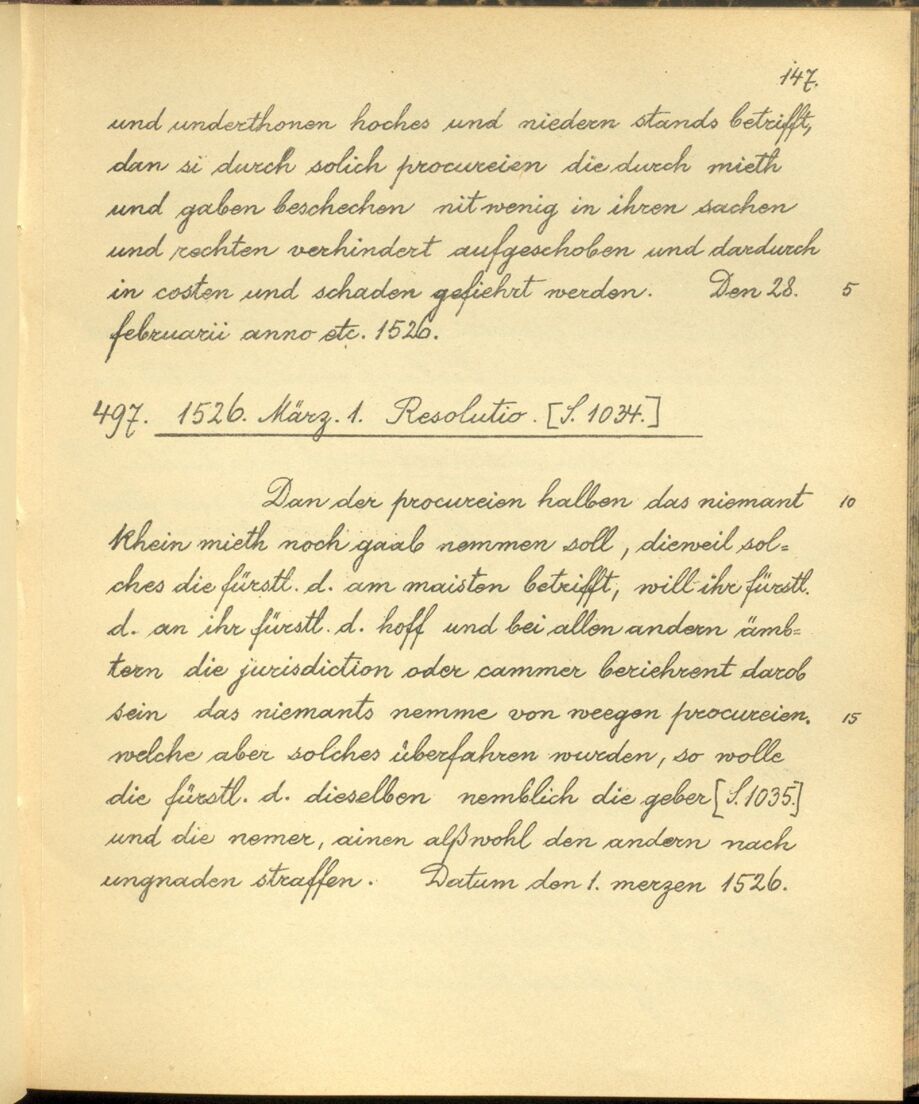 147.
und underthonen hoches und niedern stands betrifft,
dan si durch solich procureien die durch mieth
und gaben beschechen nit wenig in ihren sachen
und rechten verhindert aufgeschoben und dardurch
in costen und schaden gefiehrt werden. Den 28. 5
februarii anno etc. 1526.
497. 1526. März. 1. Resolutio. [S. 1034.]
Dan der procureien halben das niemant 10
khein mieth noch gaab nemmen soll, dieweil sol=
ches die fürstl. d. am maisten betrifft, will ihr fürstl.
d. an ihr fürstl. d. hoff und bei allen andern ämb=
tern die jurisdiction oder cammer beriehrent darob
sein das niemants nemme von weegen procureien. 15
welche aber solches überfahren wurden, so wolle
die fürstl. d. dieselben nemblich die geber [S. 1035.]
und die nemer, ainen alß wohl den andern nach
ungnaden straffen. Datum den 1. merzen 1526.